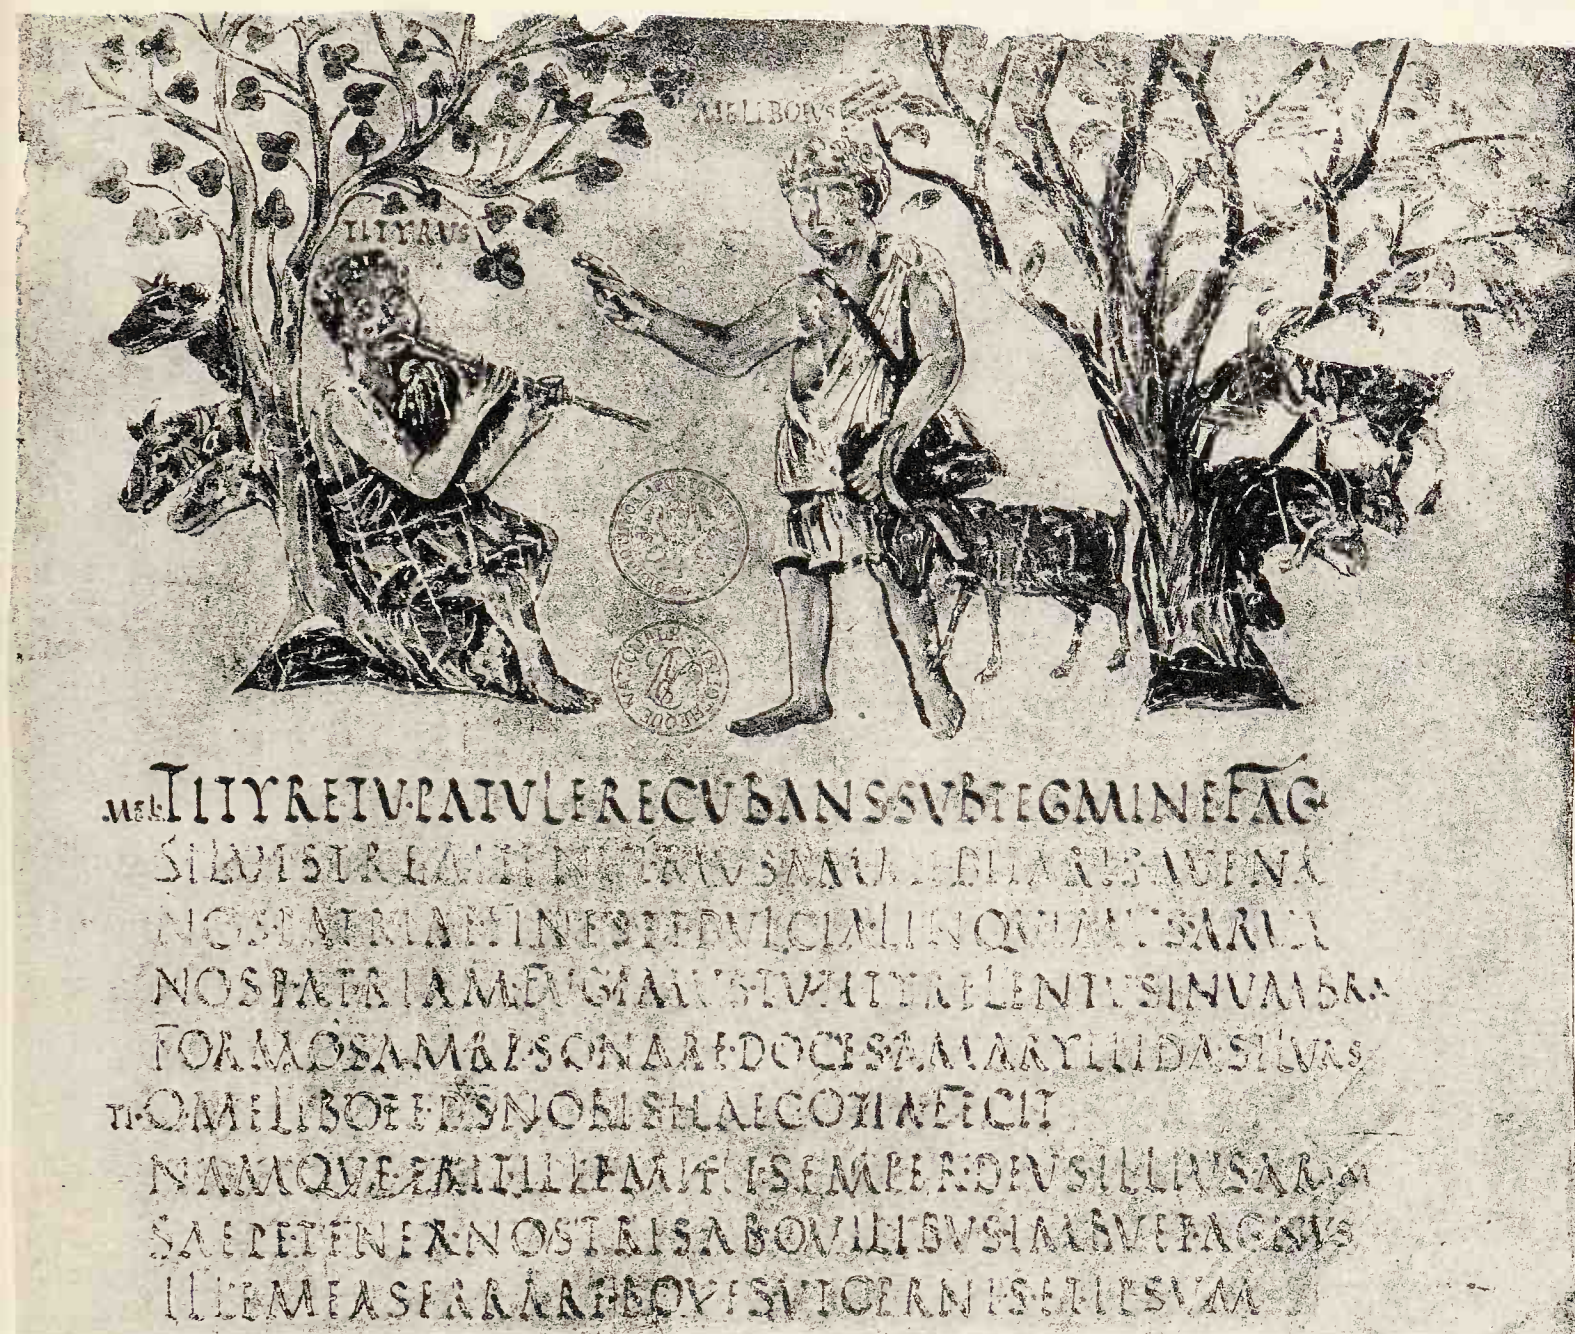 MELIBOEVS
TITYRVS
MEL· TITYRE TV PATVLE RECVBANS SVB TEGMINE FAGI
SILVISTREM TENVI MVSAM MEDITARIS AVENA
NOS PATRIAE FINES ET DVLCIA LINQVIMVS ARVA
NOS PATRIAM FVGIMVS TV TITYRE LENTVS IN VMBRA
FORMOSAM RESONARE DOCES AMARYLLIDA SILVAS
TI· O MELIBOEE DS NOBIS HAEC OTIA FECIT
NAMQVE ERIT ILLE MIHI SEMPER DEVS ILLIVS ARAM
SAEPE TENER NOSTRIS AB OVILIBVS IMBVET AGNVS
ILLE MEAS ERRARE BOVES VT CERNIS ET IPSVM